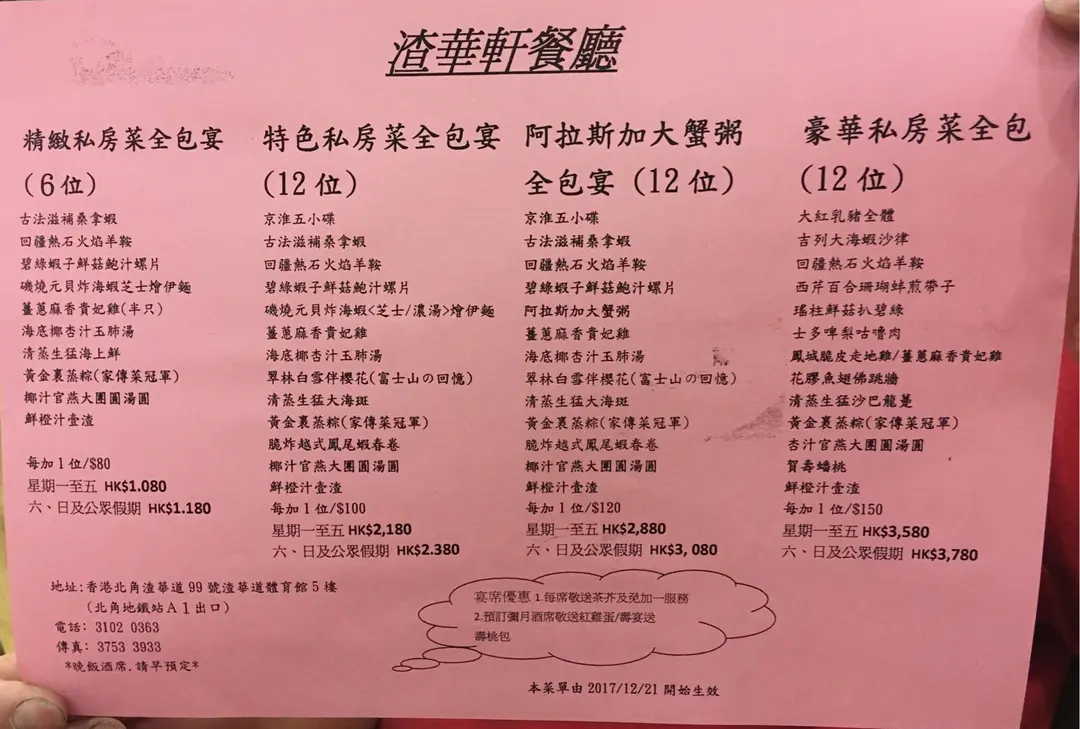 渣華軒餐廳
精緻私房菜全包宴
(6位)
古法滋補桑拿蝦
回疆熱石火焰羊鞍
碧綠蝦子鮮菇鮑汁螺片
磯燒元貝炸海蝦芝士燴伊麵
薑蔥麻香貴妃雞(半只)
海底椰杏汁玉肺湯
清蒸生猛海上鮮
黃金裏蒸粽(家傳菜冠軍)
椰汁官燕大團圓湯圓
鮮橙汁壹渣
每加1位/$80
星期一至五 HK$1.080
六、日及公眾假期 HK$1.180
特色私房菜全包宴
(12位)
京淮五小碟
古法滋補桑拿蝦
回疆熱石火焰羊鞍
碧綠蝦子鮮菇鮑汁螺片
磯燒元貝炸海蝦<芝士/濃湯>燴伊麵
薑蔥麻香貴妃雞
海底椰杏汁玉肺湯
翠林白雪伴櫻花(富士山の回憶)
清蒸生猛大海斑
黃金裏蒸粽(家傳菜冠軍)
脆炸越式鳳尾蝦春卷
椰汁官燕大團圓湯圓
鮮橙汁壹渣
每加1位/$100
星期一至五 HK$2,180
六、日及公眾假期 HK$2.380
阿拉斯加大蟹粥
全包宴(12位)
京淮五小碟
古法滋補桑拿蝦
回疆熱石火焰羊鞍
碧綠蝦子鮮菇鮑汁螺片
阿拉斯加大蟹粥
薑蔥麻香貴妃雞
海底椰杏汁玉肺湯
翠林白雪伴櫻花(富士山の回憶)
清蒸生猛大海斑
黃金裏蒸粽(家傳菜冠軍)
脆炸越式鳳尾蝦春卷
椰汁官燕大團圓湯圓
鮮橙汁壹渣
每加1位/$120
星期一至五 HK$2,880
六、日及公眾假期 HK$3,080
豪華私房菜全包
(12位)
大紅乳豬全體
吉列大海蝦沙律
回疆熱石火焰羊鞍
西芹百合珊瑚蚌煎帶子
瑤柱鮮菇扒碧綠
士多啤梨咕嚕肉
鳳城脆皮走地雞/薑蔥麻香貴妃雞
花膠魚翅佛跳牆
清蒸生猛沙巴龍躉
黃金裏蒸粽(家傳菜冠軍)
杏汁官燕大團圓湯圓
賀壽蟠桃
鮮橙汁壹渣
每加1位/$150
星期一至五 HK$3,580
六、日及公眾假期 HK$3,780
地址:香港北角渣華道99號渣華道體育館5樓
(北角地鐵站A1出口)
電話: 3102 0363
傳真: 3753 3933
*晚飯酒席,請早預定*
宴席優惠 1.每席敬送茶芥及免加一服務
2.預訂彌月酒席敬送紅雞蛋/壽宴送
壽桃包
本菜單由2017/12/21開始生效